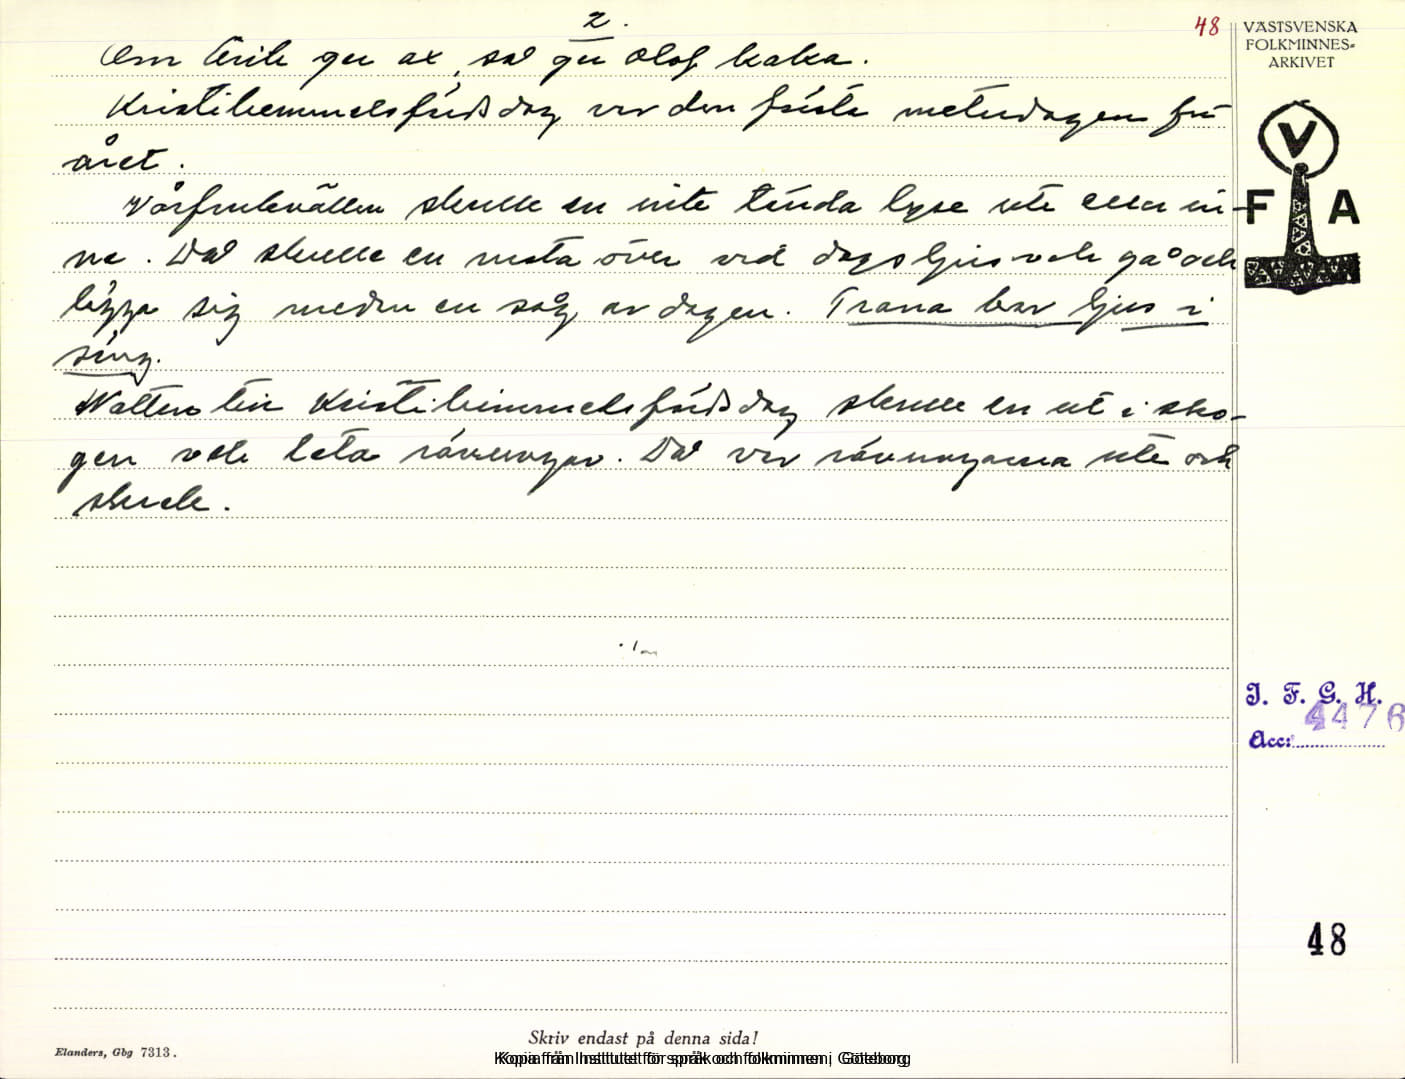 2.
48
VÄSTSVENSKA
FOLKMINNES=
ARKIVET
Om Erik ger ax, så ger Olof kaka.
Kristihimmelsfärdsdag var den första meteredagen för
året.
V
F A
Vårfrukvällen skulle en inte tända lyse ute eller in-
ne. Då skulle en nata över vid dagsljus och gå och
lägga sig medan en såg av dagen. Trana bar ljus i
säng.
Natten till Kristihimmelsfärdsdag skulle en ut i sko-
gen och leta rävungar. Då var rävungarna ute och
skrek.
I. F. G. H.
4476
Acc:
48
Skriv endast på denna sida!
Elanders, Gbg 7313.
Kopia från Institutet för språk och folkminnen i Göteborg